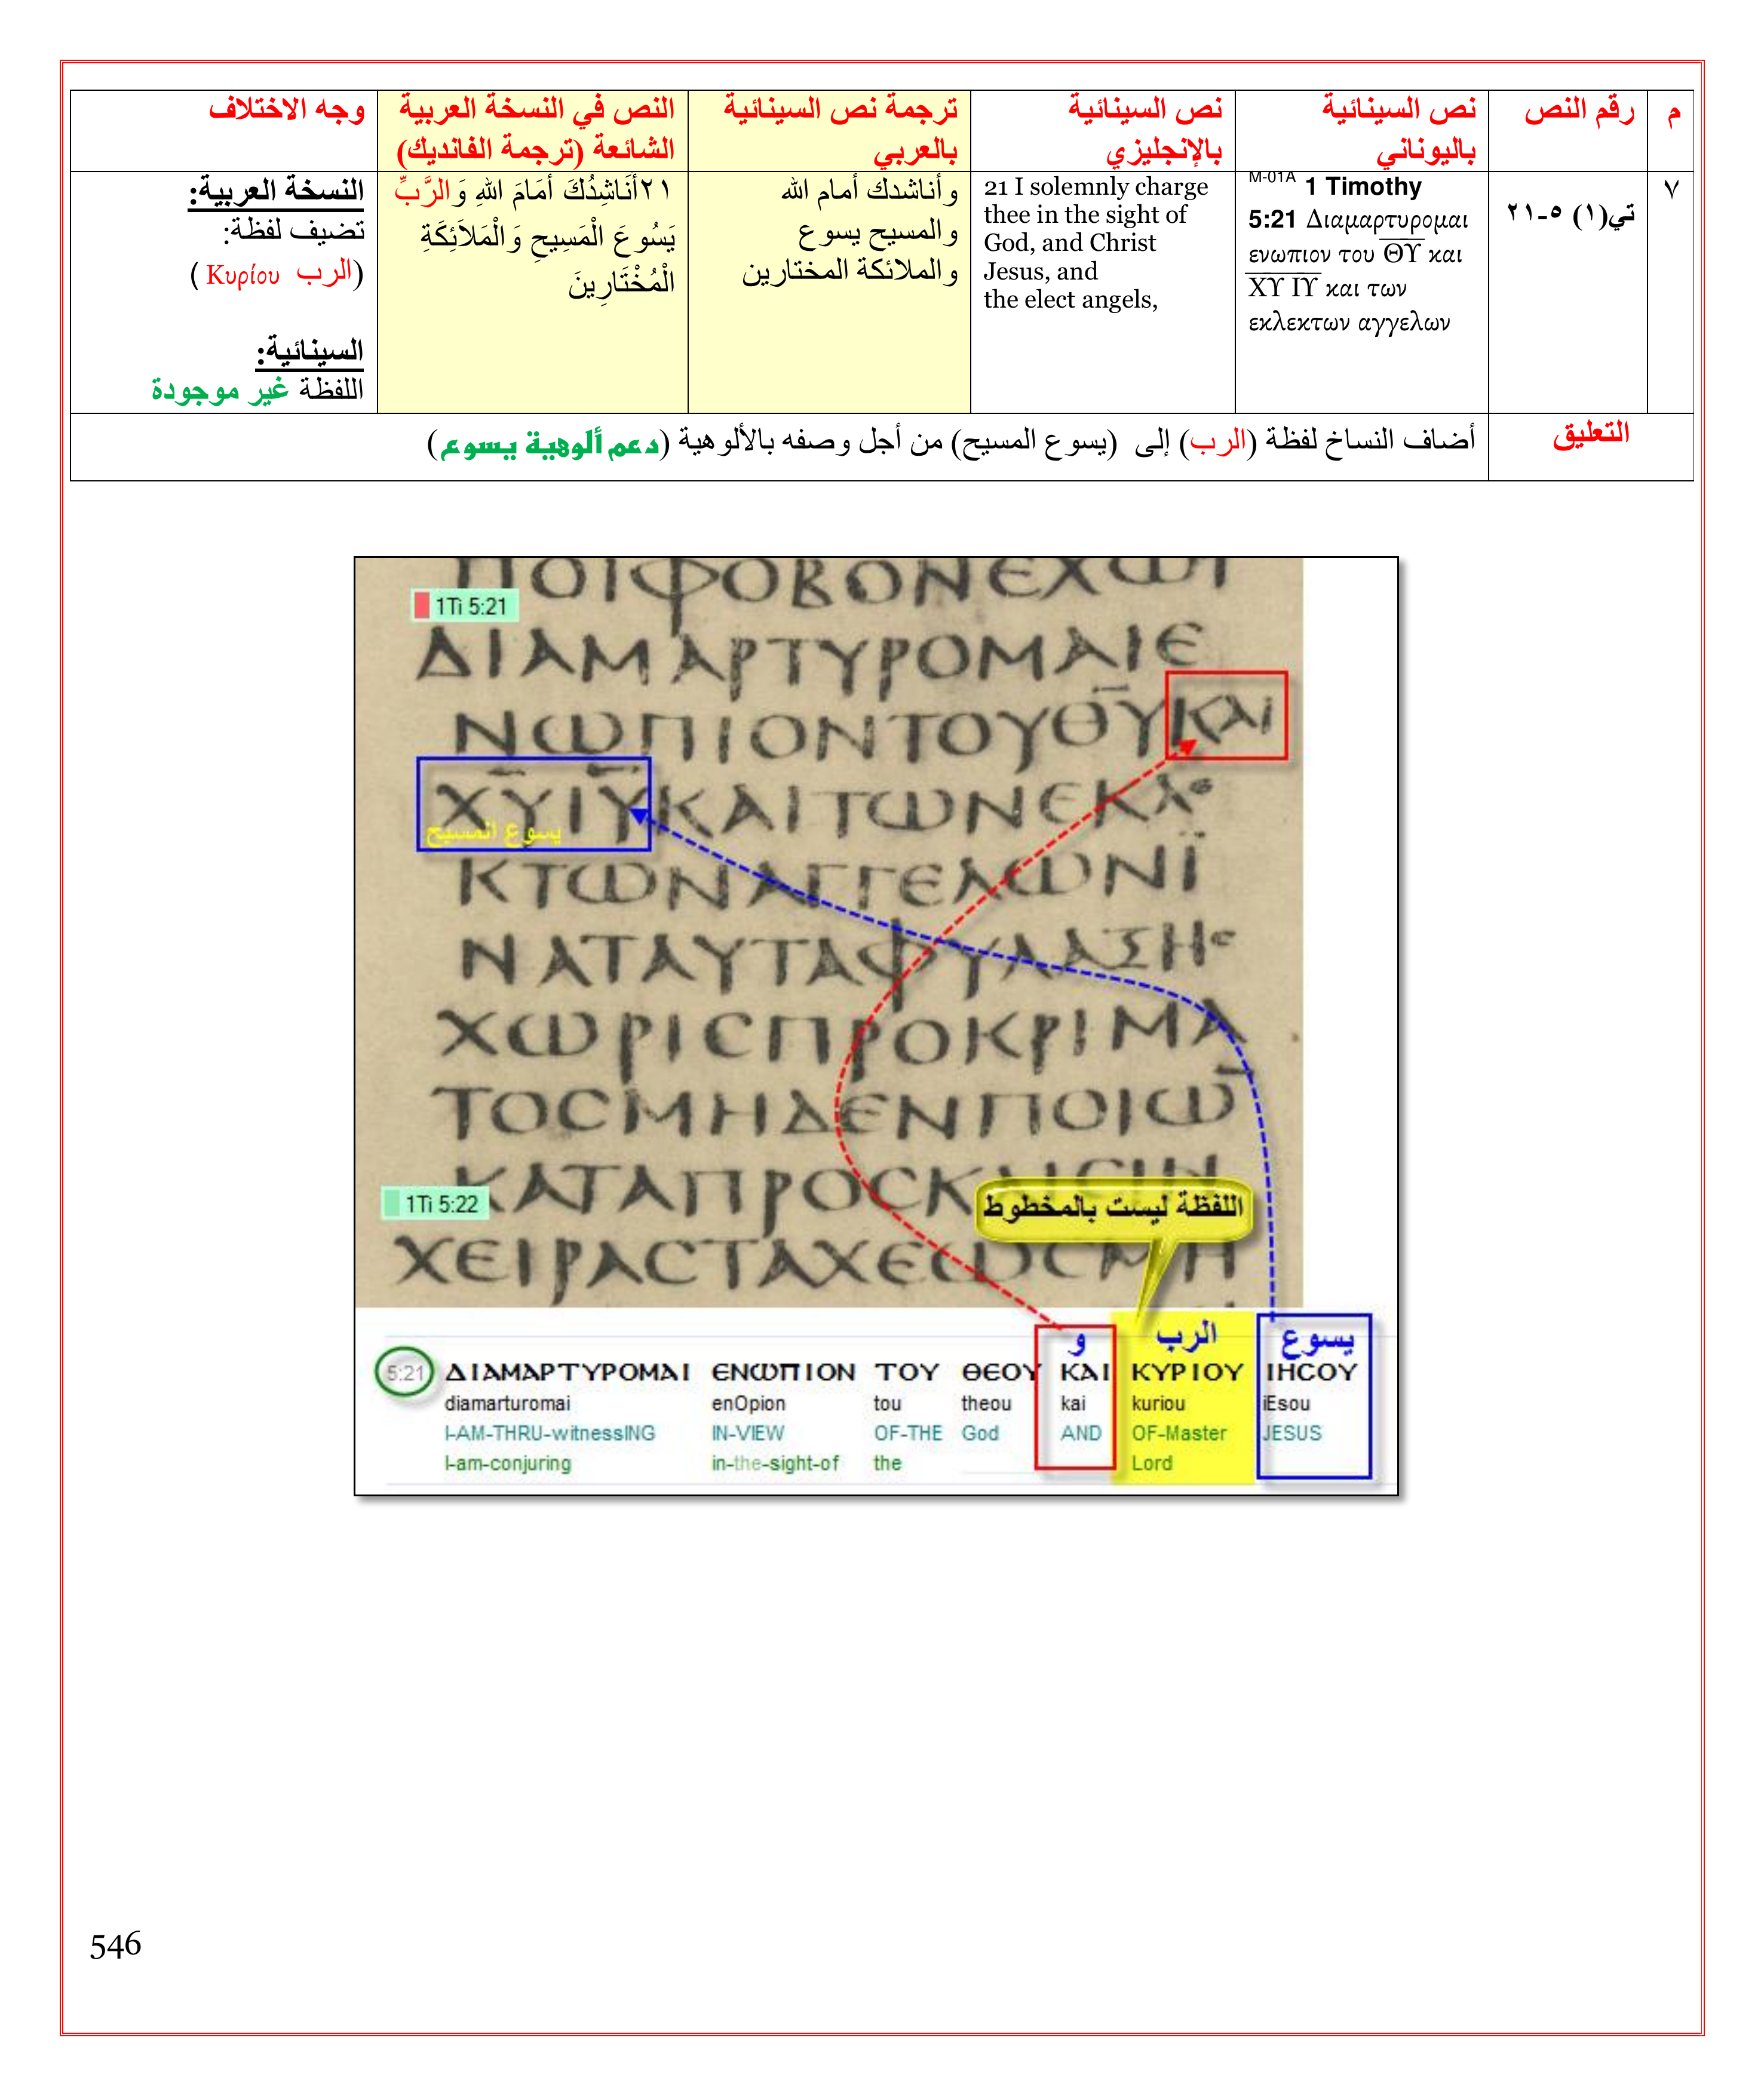 م
رقم النص
نص السينائية
باليوناني
نص السينائية
بالإنجليزي
ترجمة نص السينائية
بالعربي
النص في النسخة العربية
الشائعة (ترجمة الفانديك)
وجه الاختلاف
٧
تي(١) ٥-٢١
M-01A 1 Timothy
5:21 Διαμαρτυρομαι
ενωπιον του ΘΥ και
ΧΥ ΙΥ και των
εκλεκτων αγγελων
21 I solemnly charge
thee in the sight of
God, and Christ
Jesus, and
the elect angels,
وأناشدك أمام الله
والمسيح يسوع
والملائكة المختارين
٢١أُنَاشِدُكَ أَمَامَ اللهِ وَالرَّبِّ
يَسُوعَ الْمَسِيحِ وَالْمَلاَئِكَةِ
الْمُخْتَارِينَ
النسخة العربية:
تضيف لفظة:
(الرب Κυρίου )
السينائية:
اللفظة غير موجودة
التعليق
أضاف النساخ لفظة (الرب) إلى (يسوع المسيح) من أجل وصفه بالألوهية (دعم ألوهية يسوع)
ΠΟΙΦΟΒΟΝΕΧΩΣΙ
1Ti 5:21
ΔΙΑΜΑΡΤΥΡΟΜΑΙΕ
ΝΩΠΙΟΝΤΟΥΘΥΚΑΙ
ΧΥΙΥΚΑΙΤΩΝΕΚΛΕ
يسوع المسيح
ΚΤΩΝΑΓΓΕΛΩΝΪ
ΝΑΤΑΥΤΑΦΥΛΑΞΗϹ
ΧΩΡΙϹΠΡΟΚΡΙΜΑ
ΤΟϹΜΗΔΕΝΠΟΙΩ̅
1Ti 5:22
ΚΑΤΑΠΡΟϹΚΛΙϹΙΝ
اللفظة ليست بالمخطوط
ΧΕΙΡΑϹΤΑΧΕΩϹΜΗ
و الرب يسوع
5:21 ΔΙΑΜΑΡΤΥΡΟΜΑΙ ΕΝΩΠΙΟΝ ΤΟΥ ΘΕΟΥ ΚΑΙ ΚΥΡΙΟΥ ΙΗϹΟΥ
diamarturomai enOpion tou theou kai kuriou iEsou
I-AM-THRU-witnessING IN-VIEW OF-THE God AND OF-Master JESUS
I-am-conjuring in-the-sight-of the Lord
546